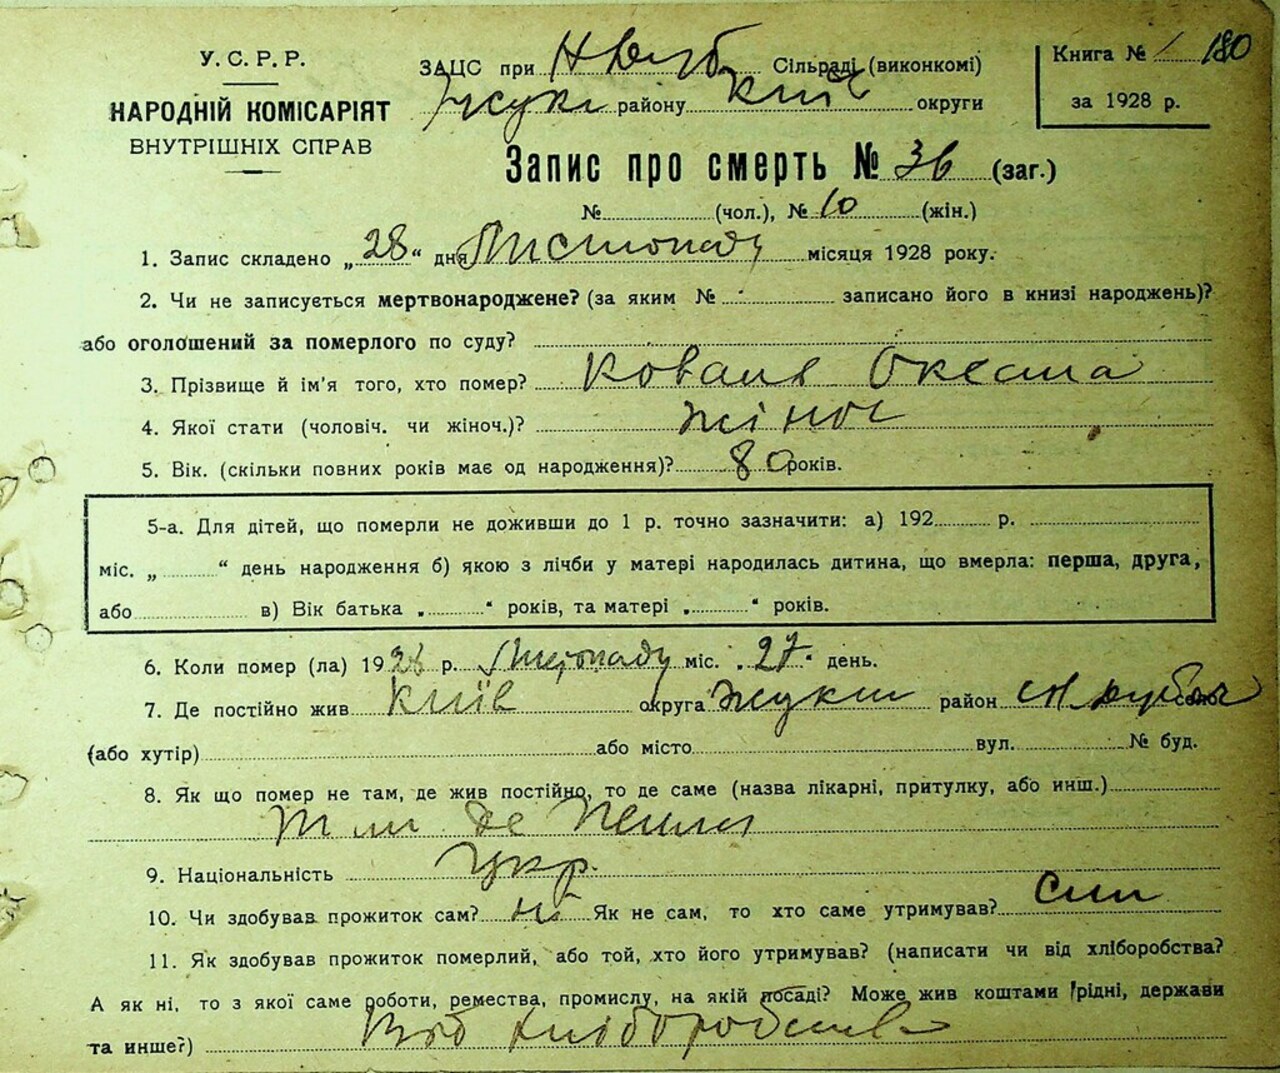 У. С. Р. Р.
НАРОДНІЙ КОМІСАРІЯТ
ВНУТРІШНІХ СПРАВ
ЗАЦС при Сільраді (виконкомі)
району Київ округи
Книга № 180
за 1928 р.
Запис про смерть № 36 (заг.)
№ (чол.), № 10 (жін.)
1. Запис складено „28“ дня Листопаду місяця 1928 року.
2. Чи не записується мертвонароджене? (за яким № записано його в книзі народжень)?
або оголошений за померлого по суду?
3. Прізвище й ім'я того, хто помер? Коваль Оксана
4. Якої стати (чоловіч. чи жіноч.)? жіноч
5. Вік. (скільки повних років має од народження)? 80 років.
5-а. Для дітей, що померли не доживши до 1 р. точно зазначити: а) 192 р.
міс. „ “ день народження б) якою з лічби у матері народилась дитина, що вмерла: перша, друга,
або в) Вік батька „ “ років, та матері „ “ років.
6. Коли помер (ла) 1928 р. Листопаду міс. „27“ день.
7. Де постійно жив Київ округа район село
(або хутір) або місто вул. № буд.
8. Як що помер не там, де жив постійно, то де саме (назва лікарні, притулку, або инш.)
Там де
9. Національність Укр.
10. Чи здобував прожиток сам? ні Як не сам, то хто саме утримував? син
11. Як здобував прожиток померлий, або той, хто його утримував? (написати чи від хліборобства?
А як ні, то з якої саме роботи, ремества, промислу, на якій посаді? Може жив коштами рідні, держави
та инше?) Від хліборобства